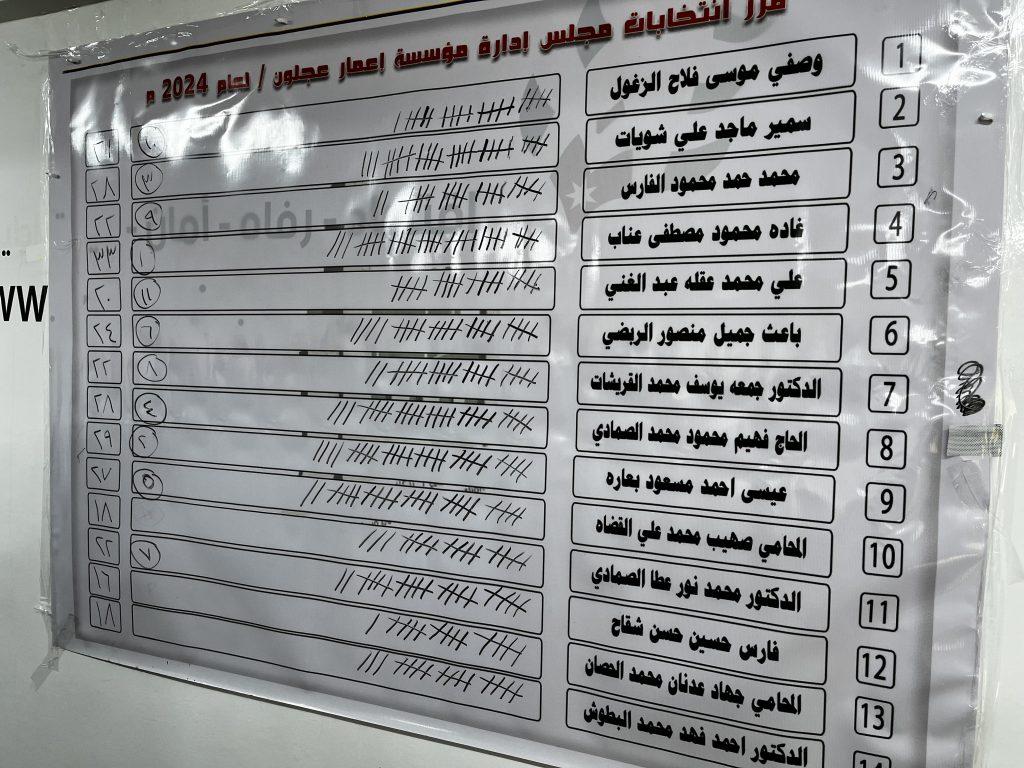 فرز انتخابات مجلس إدارة مؤسسة إعمار عجلون / لعام 2024 م
1 وصفي موسى فلاح الزغول ١٠ ٢١
2 سمير ماجد علي شويات ٣ ٢٨
3 محمد حمد محمود الفارس ٩ ٢٢
4 غاده محمود مصطفى عناب ١ ٣٣
5 علي محمد عقله عبد الغني ١١ ٢٠
6 باعث جميل منصور الربضي ٦ ٢٤
7 الدكتور جمعه يوسف محمد القريشات ٨ ٢٢
8 الحاج فهيم محمود محمد الصمادي ٤ ٢٨
9 عيسى احمد مسعود بعاره ٢ ٢٩
10 المحامي صهيب محمد علي القضاه ٥ ٢٧
11 الدكتور محمد نور عطا الصمادي ١٨
12 فارس حسين حسن شقاح ٧ ٢٢
13 المحامي جهاد عدنان محمد الحصان ١٦
14 الدكتور احمد فهد محمد البطوش ١٨
رفاه - أمان
WW